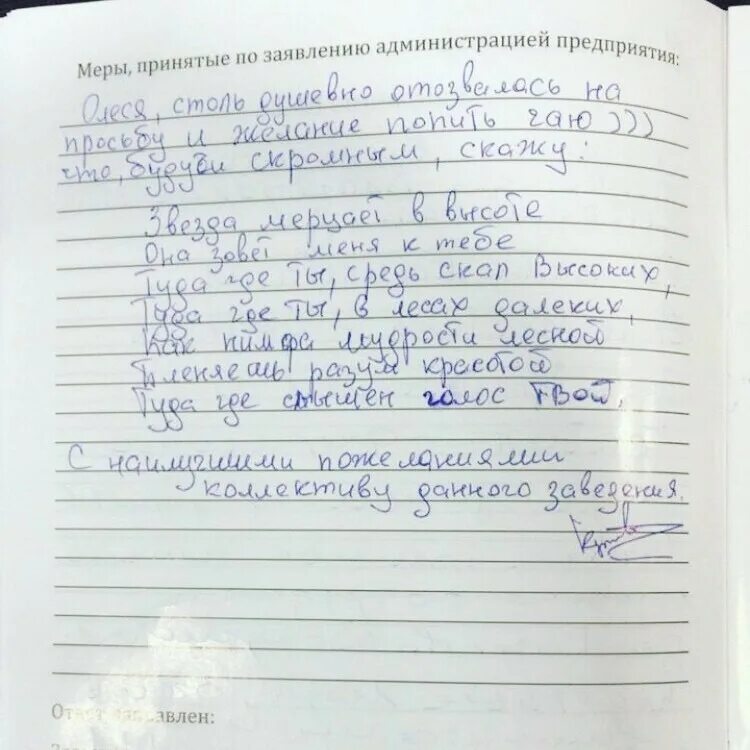 Меры, принятые по заявлению администрацией предприятия:
Олеся, столь душевно отозвалась на
просьбу и желание попить чаю )))
что, будучи скромным, скажу:
Звезда мерцает в высоте
Она зовет меня к тебе
Туда где ты, средь скал высоких,
Туда где ты, в лесах далеких,
Как нимфа мудрости лесной
Пленяешь разум красотой
Туда где слышен голос твой.
С наилучшими пожеланиями
коллективу данного заведения.
Ответ направлен: